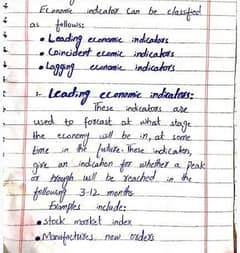 Economic indicator can be classified
as follows:
• Leading economic indicators
• Coincident ecomic indicators
• Lagging economic indicators
1. Leading economic indicators:
These indicators are
used to forcast at what stage
the economy will be in, at some
time in the future. These indicators,
give an indication for whether a peak
or trough will be reached in the
following 3-12 months
Examples include:
• stock market index
• Manufactures new orders